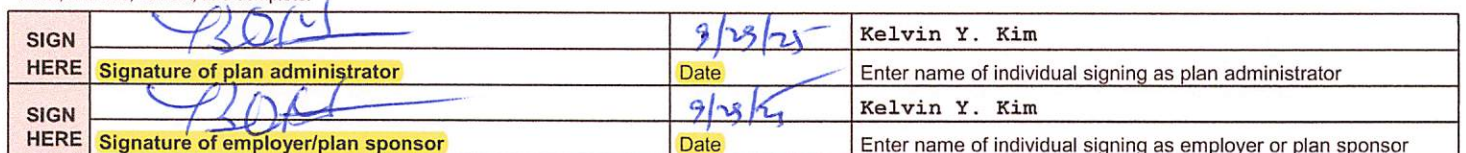 SIGN HERE
9/29/25 Kelvin Y. Kim
Signature of plan administrator Date Enter name of individual signing as plan administrator
SIGN HERE
9/29/25 Kelvin Y. Kim
Signature of employer/plan sponsor Date Enter name of individual signing as employer or plan sponsor